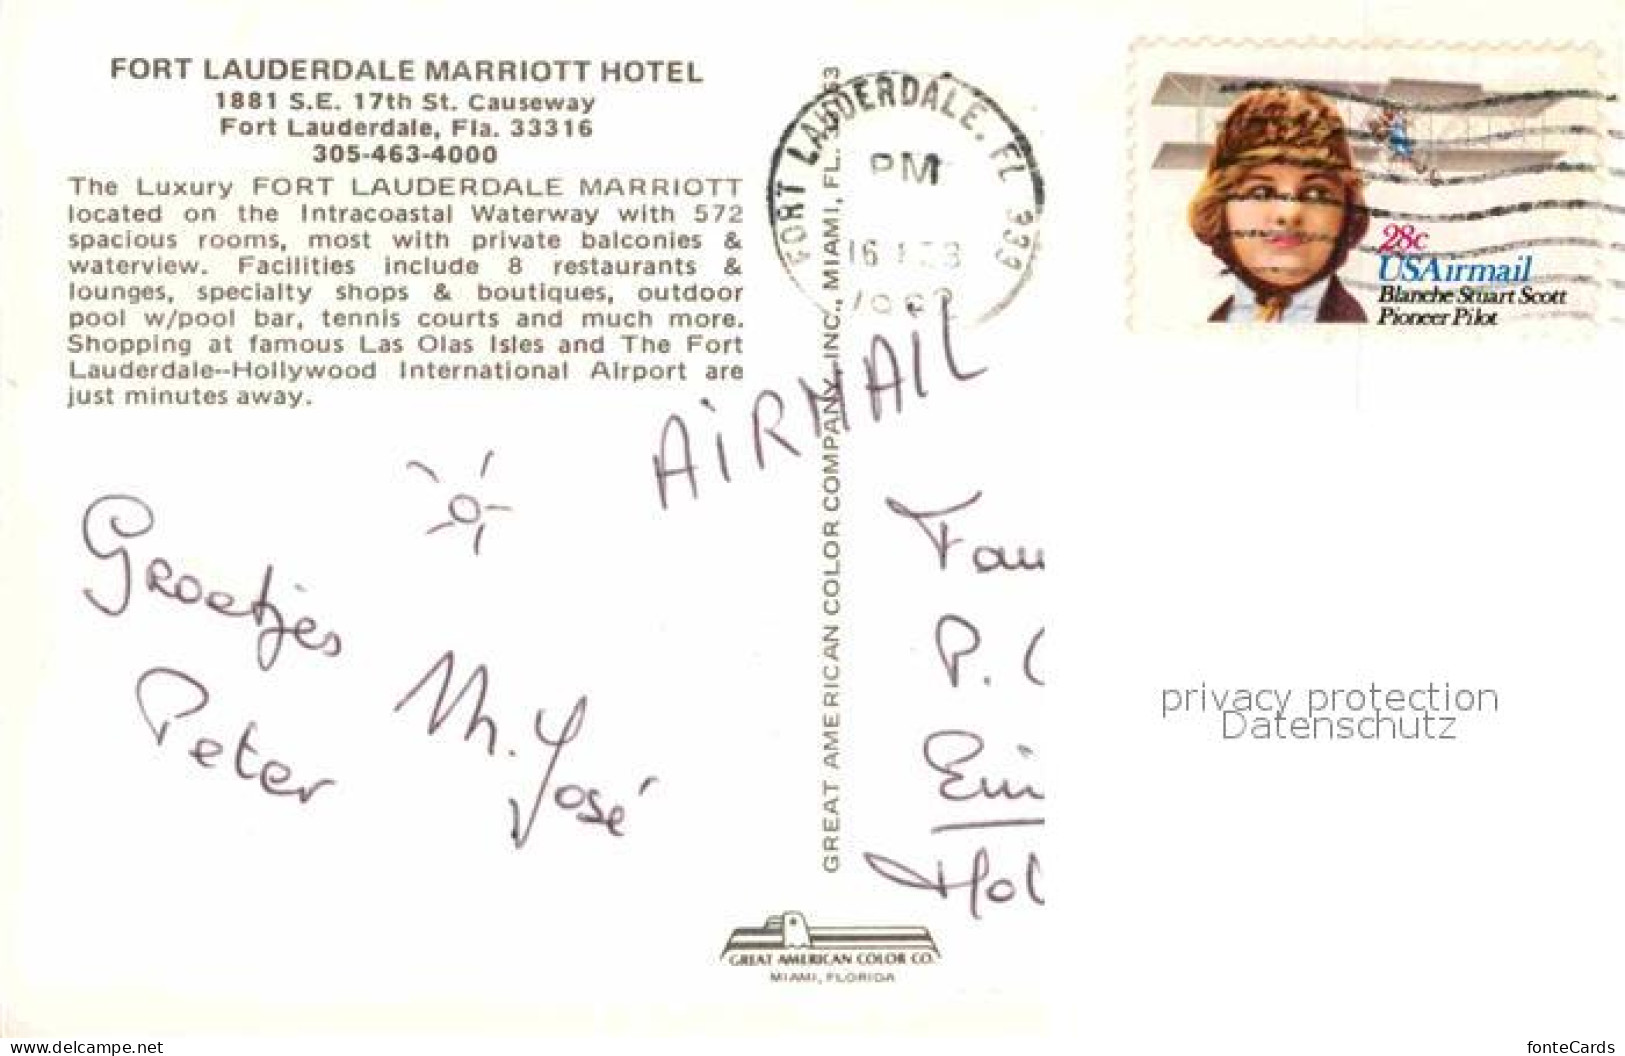 FORT LAUDERDALE MARRIOTT HOTEL
1881 S.E. 17th St. Causeway
Fort Lauderdale, Fla. 33316
305-463-4000
The Luxury FORT LAUDERDALE MARRIOTT
located on the Intracoastal Waterway with 572
spacious rooms, most with private balconies &
waterview. Facilities include 8 restaurants &
lounges, specialty shops & boutiques, outdoor
pool w/pool bar, tennis courts and much more.
Shopping at famous Las Olas Isles and The Fort
Lauderdale--Hollywood International Airport are
just minutes away.
AIRMAIL
Groetjes
Peter
M. José
GREAT AMERICAN COLOR COMPANY, INC., MIAMI, FL.
GREAT AMERICAN COLOR CO.
MIAMI, FLORIDA
FORT LAUDERDALE, FL 333
PM
16
28c
USAirmail
Blanche Stuart Scott
Pioneer Pilot
Fam
P.
Ein
Hol
privacy protection
Datenschutz
www.delcampe.net
fonteCards